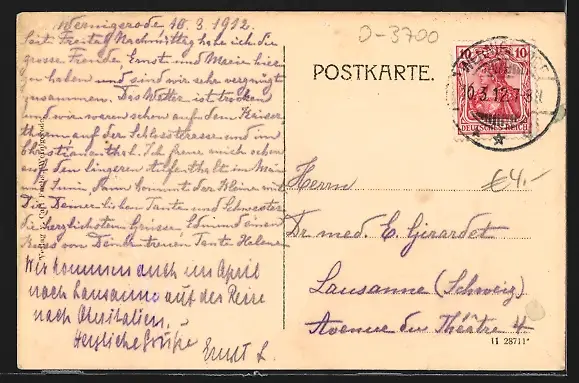 Wernigerode 10.3.1912.
Seit Freitag Nachmittag habe ich die
grosse Freude, Ernst und Marie hier
zu haben und sind wir sehr vergnügt
zusammen. Das Wetter ist trocken
und wir waren schon auf dem Kaiser
thurm auf der Schlossterrasse und im
Christianenthal. Ich freue mich schon
auf den längeren Aufenthalt im Mai
und Juni. Dann kommt der Kleine mit.
Dir Deiner lieben Tante und Schwester
die herzlichsten Grüsse, Edmund einen
Kuss von Deiner treuen Tante Helene
Wir kommen auch im April
nach Lausanne auf der Reise
nach Oberitalien.
Herzliche Grüße
Ernst L.
D-3700
POSTKARTE.
10
10.3.12.7-8N
DEUTSCHES REICH
€4.-
Herrn
Dr med. E. Girardet
Lausanne (Schweiz)
Avenue du Théâtre 4
11 28711*